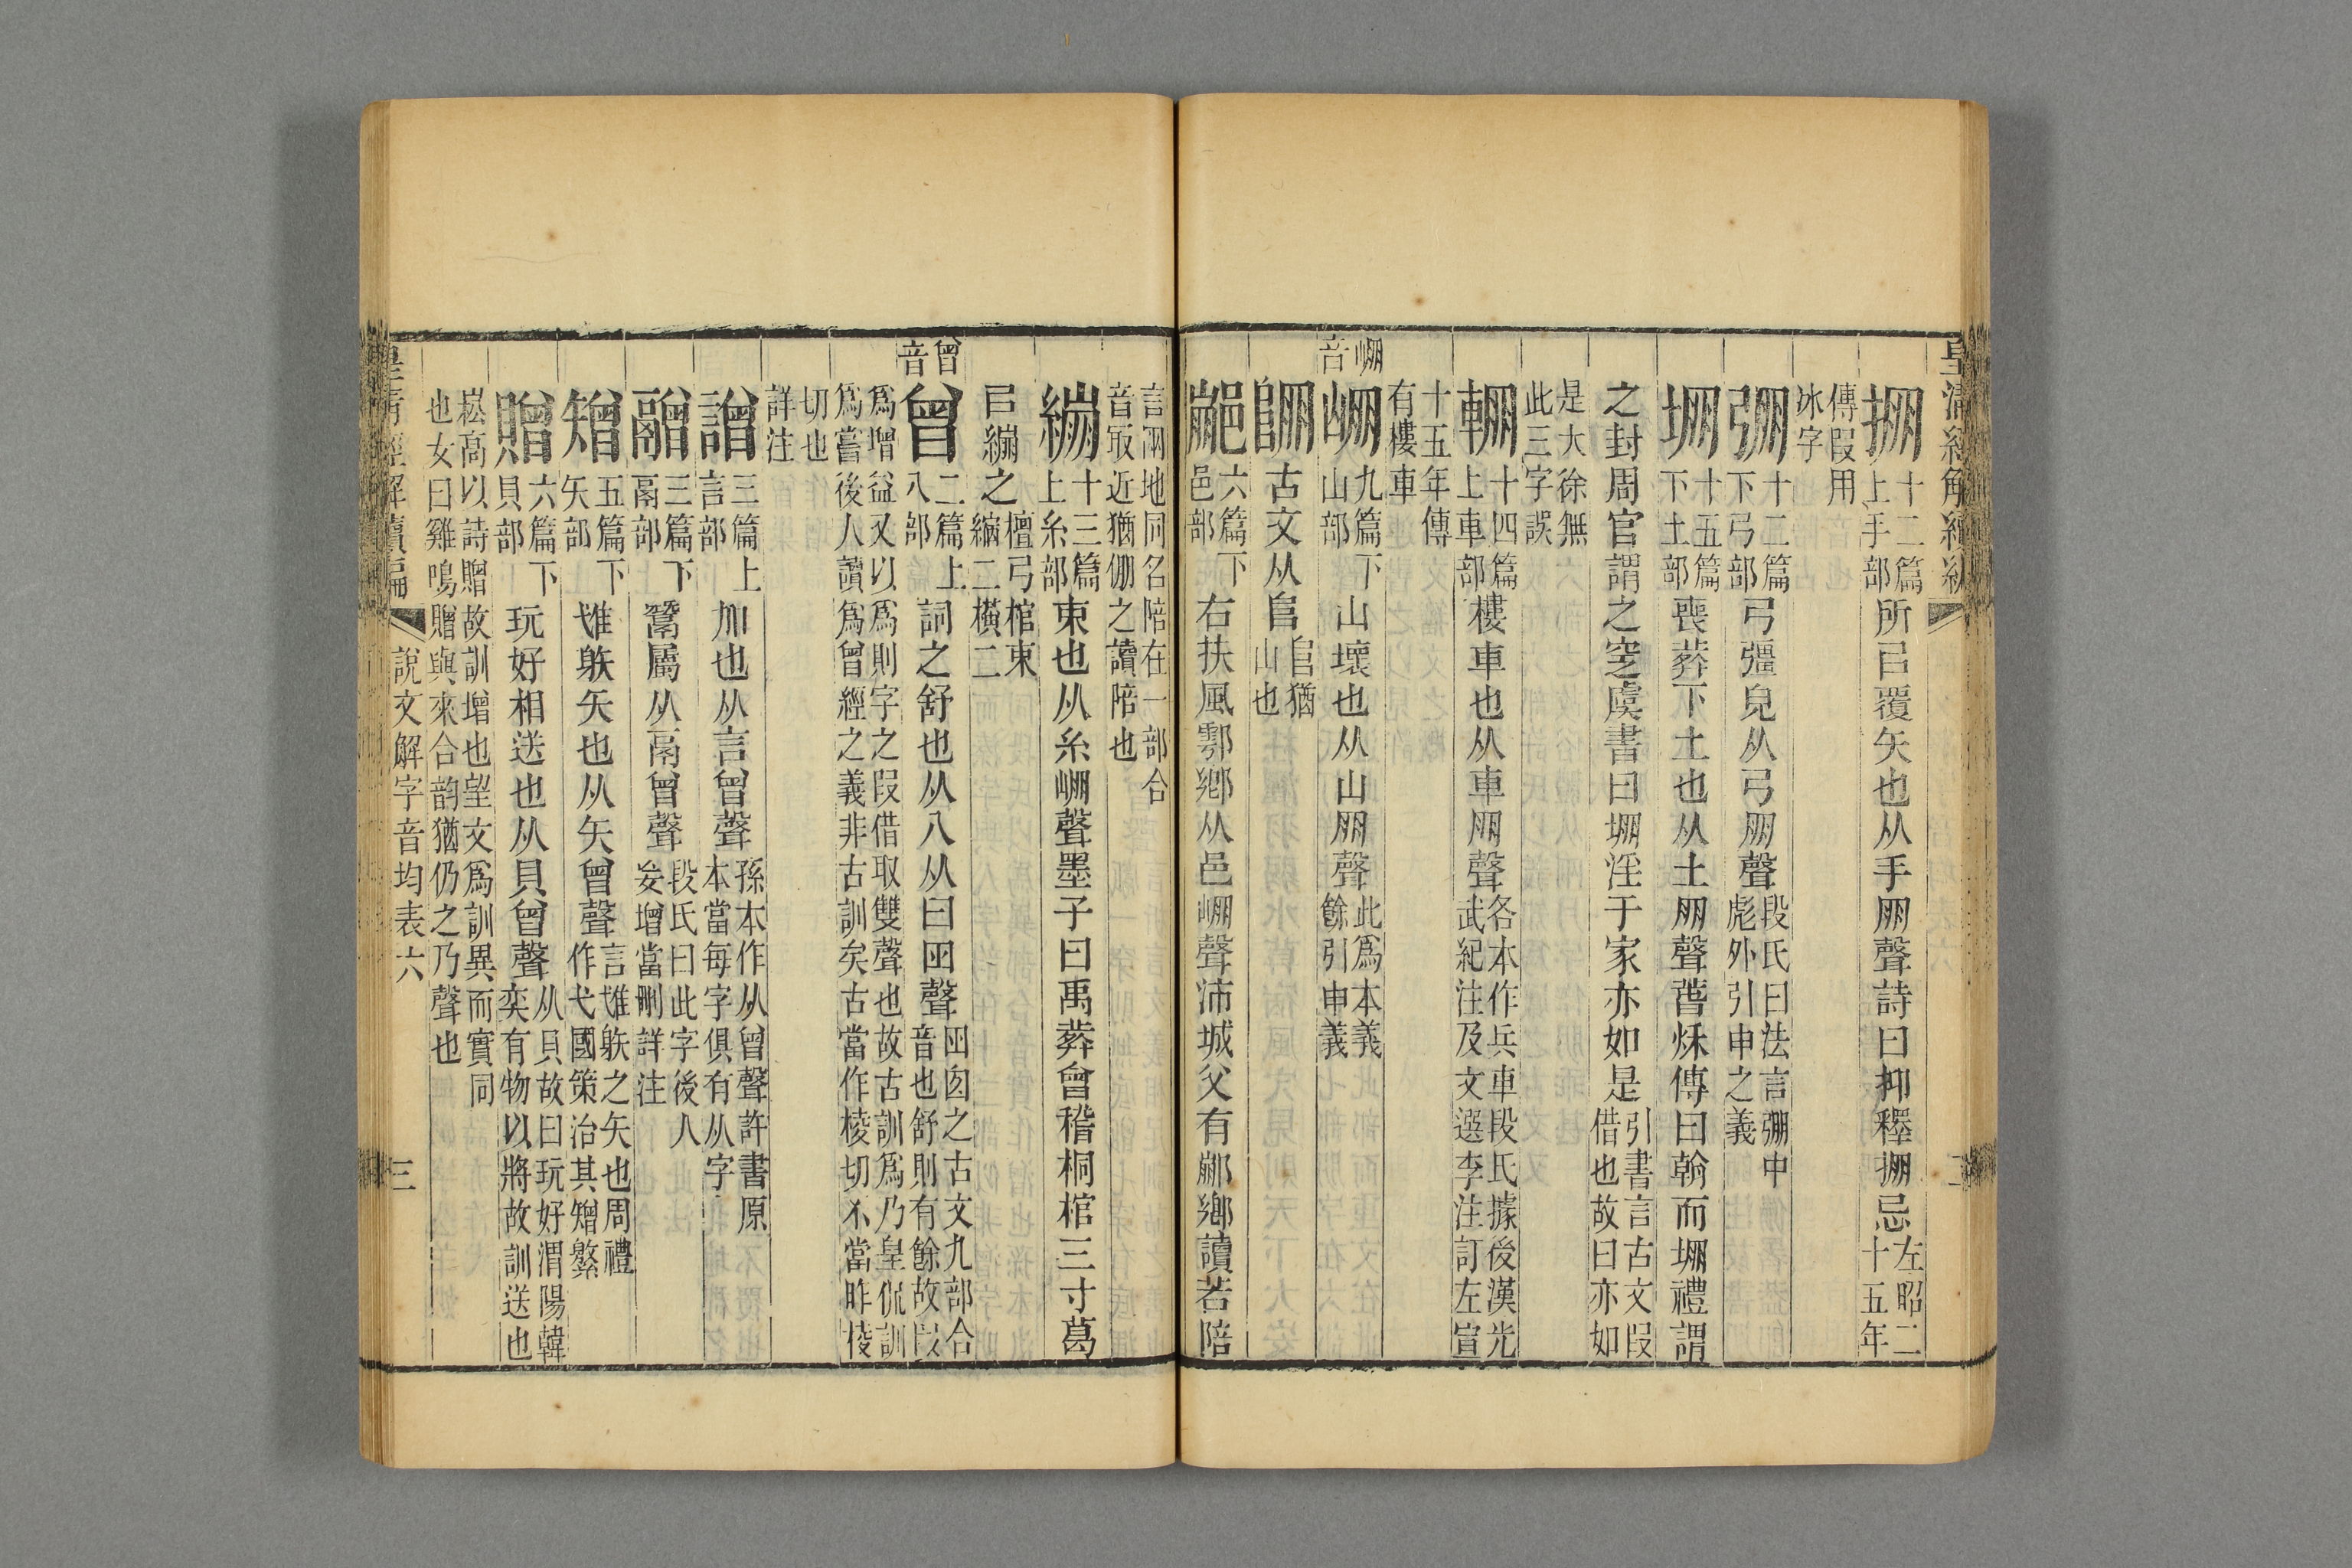 皇清經解續編
掤十二篇上手部所㠯覆矢也从手朋聲詩曰抑釋掤忌左昭二十五年
傳叚用冰字
弸十二篇下弓部弓彊皃从弓朋聲段氏曰法言弸中彪外引申之義
堋十五篇下土部喪葬下土也从土朋聲萅秌傳曰翰而堋禮謂
之封周官謂之窆虞書曰堋淫于家亦如是引書言古文叚借也故曰亦如
是大徐無此三字誤
輣十四篇上車部樓車也从車朋聲各本作兵車段氏據後漢光武紀注及文選李注訂左宣
十五年傳有樓車
崩音
崩九篇下山部山壞也从山朋聲此爲本義餘引申義
𨺀古文从𨸏𨸏猶山也
𨞙六篇下邑部右扶風鄠鄉从邑崩聲沛城父有𨞙鄉讀若陪
言兩地同名陪在一部合音冣近猶倗之讀陪也
繃十三篇上糸部束也从糸崩聲墨子曰禹葬會稽桐棺三寸葛
㠯繃之檀弓棺束縮二橫二
曾音
曾二篇上八部詞之舒也从八从曰囪聲囪囱之古文九部合音也舒則有餘故以
爲增益又以爲則字之叚借取雙聲也故古訓爲乃皇侃訓爲嘗後人讀爲曾經之義非古訓矣古當作棱切不當昨棱
切也詳注
譄三篇上言部加也从言曾聲孫本作从曾聲許書原本當每字俱有从字
鬸三篇下鬲部鬵屬从鬲曾聲段氏曰此字後人妄增當刪詳注
矰五篇下矢部隿躲矢也从矢曾聲言隿躲之矢也周禮作弋國策治其矰繁
贈六篇下貝部玩好相送也从貝曾聲从貝故曰玩好渭陽韓奕有物以將故訓送也
崧高以詩贈故訓增也望文爲訓異而實同也女曰雞鳴贈與來合韵猶仍之乃聲也
皇清經解續編 說文解字音均表六 三